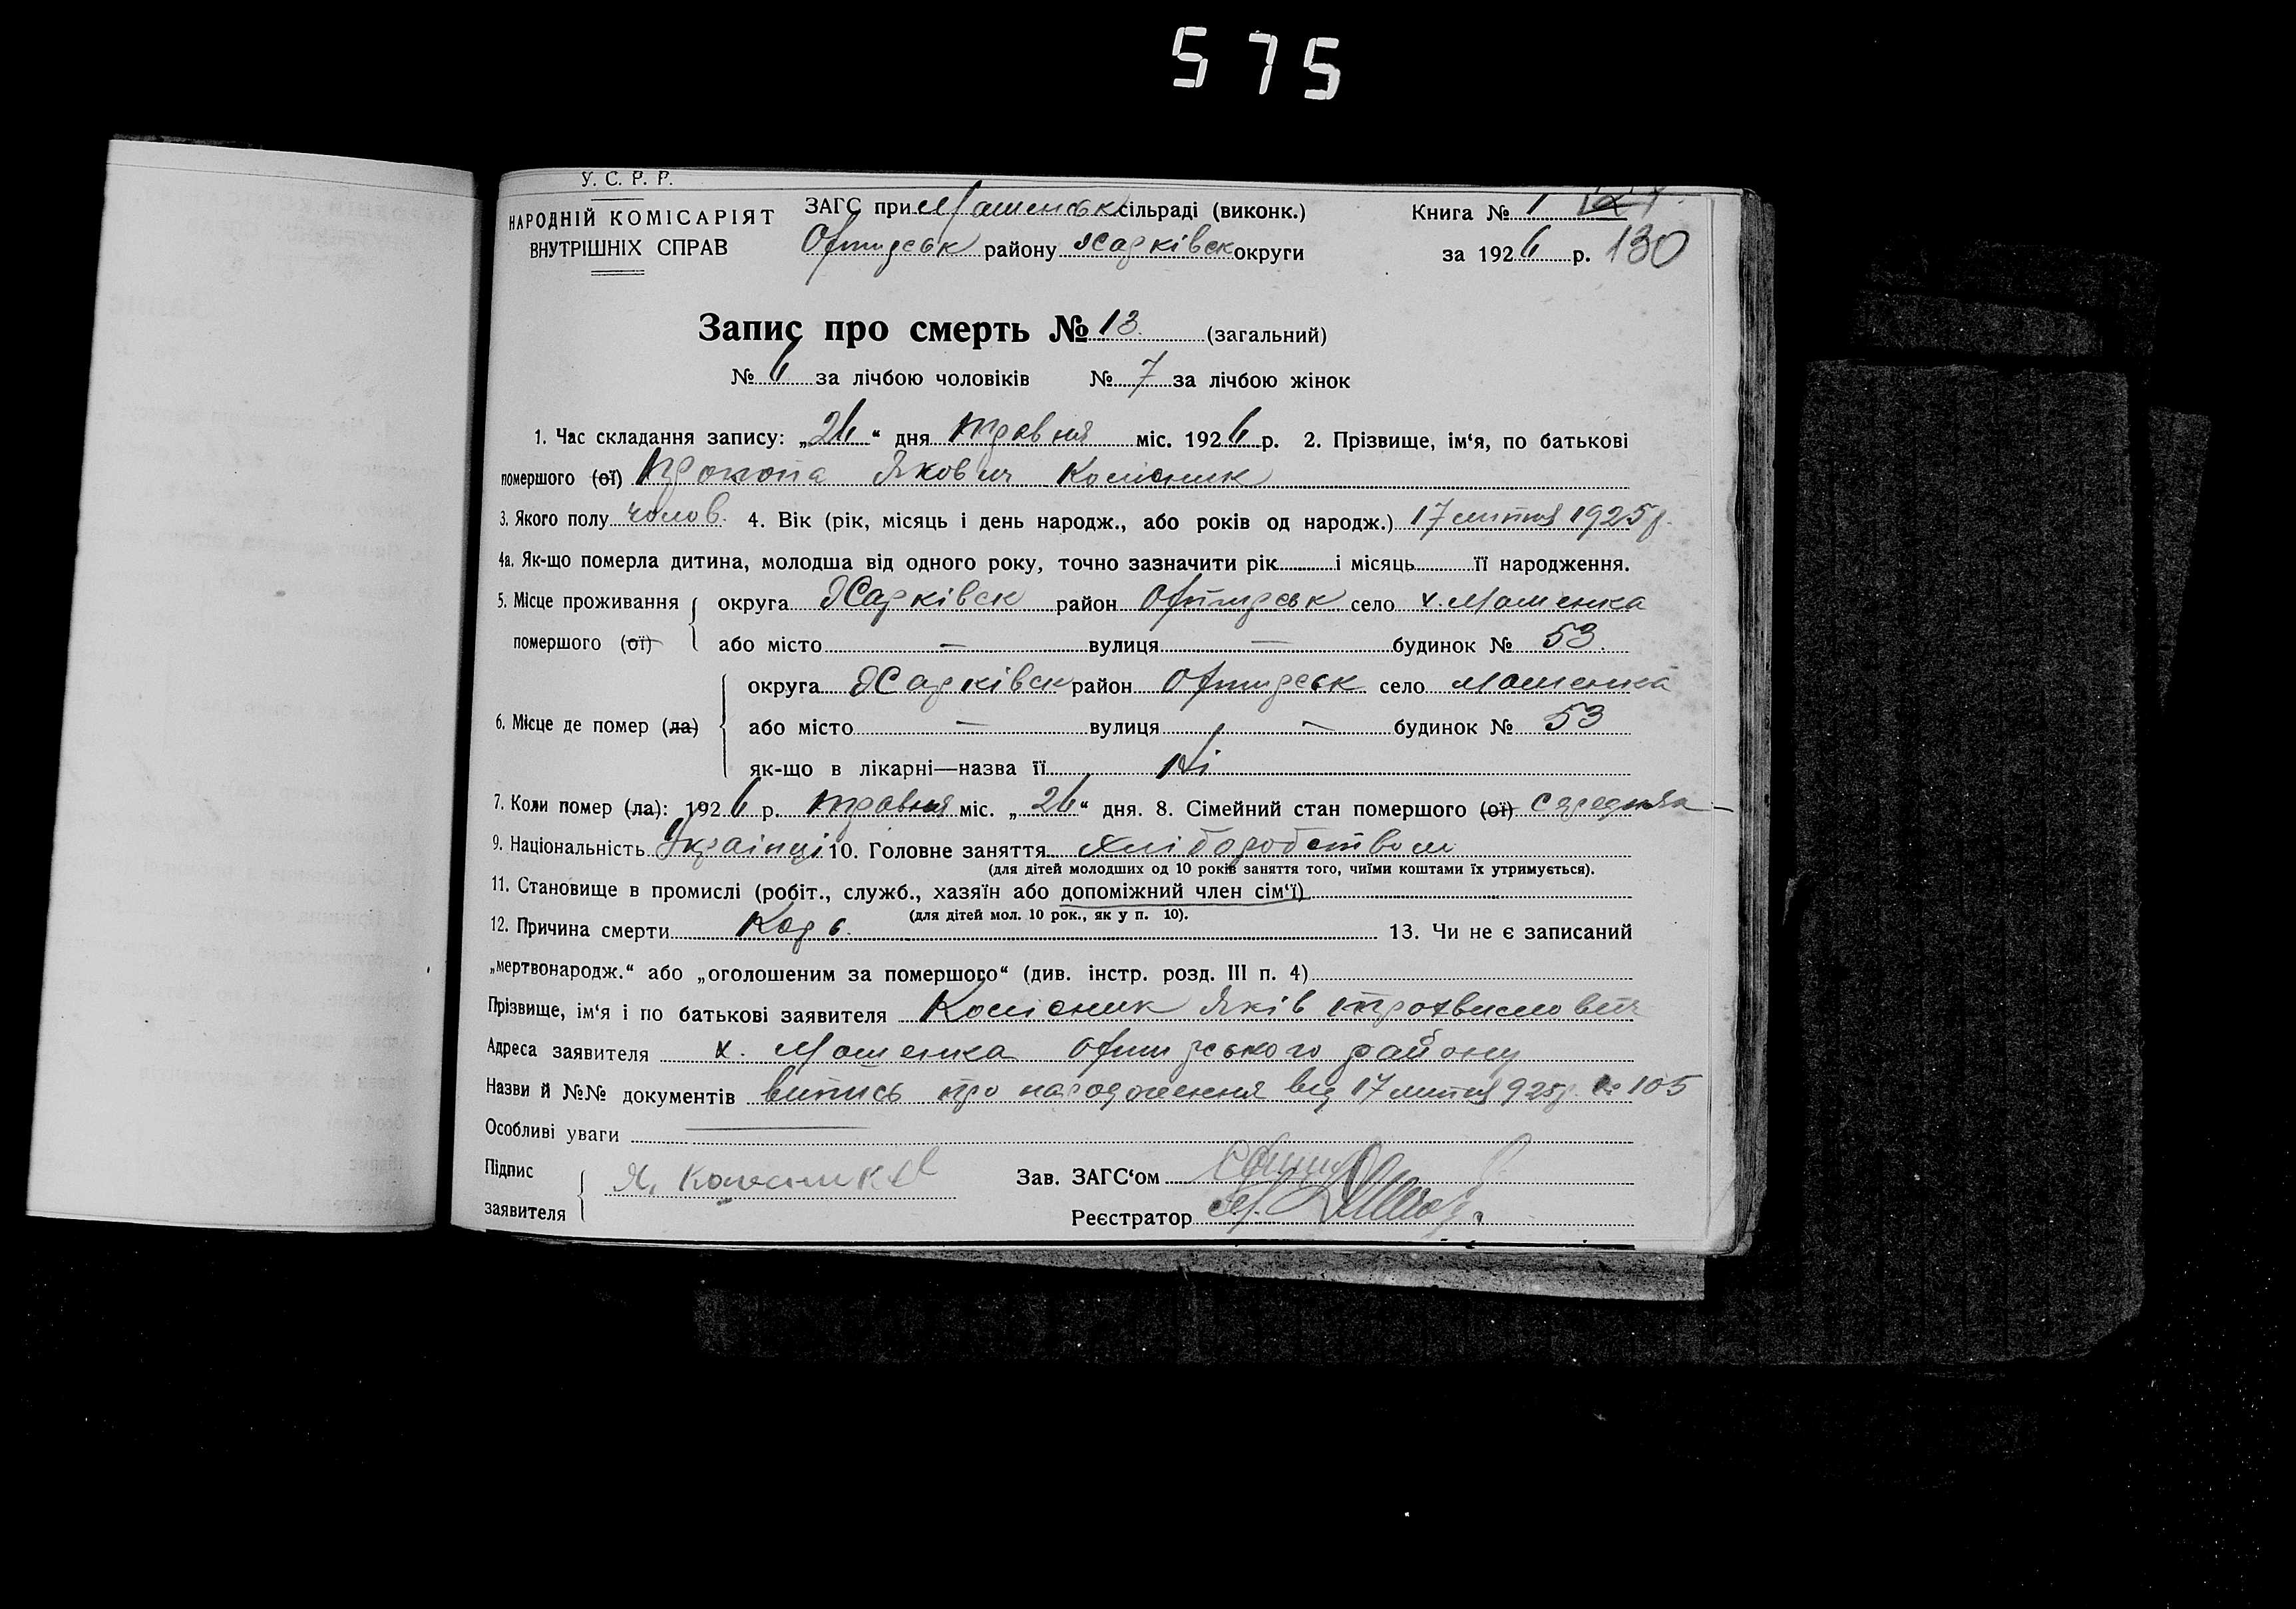 575
У. С. Р. Р.
НАРОДНІЙ КОМІСАРІЯТ
ВНУТРІШНІХ СПРАВ
ЗАГС при Мошенськ сільраді (виконк.)
Охтирськ району Харківськ округи
Книга № 1
за 1926 р. 130
Запис про смерть № 13 (загальний)
№ 6 за лічбою чоловіків № 7 за лічбою жінок
1. Час складання запису: „26“ дня травня міс. 1926 р. 2. Прізвище, ім‘я, по батькові
помершого (ої) Якович Колісник
3. Якого полу чолов. 4. Вік (рік, місяць і день народж., або років од народж.) 17 липня 1925 р.
4а. Як-що померла дитина, молодша від одного року, точно зазначити рік і місяць її народження.
5. Місце проживання помершого (ої)
округа Харківськ район Охтирськ село х. Мошенка
або місто — вулиця — будинок № 53.
6. Місце де помер (ла)
округа Харківськ район Охтирськ село Мошенка
або місто — вулиця — будинок № 53
як-що в лікарні—назва її Ні
7. Коли помер (ла): 1926 р. травня міс. „26“ дня. 8. Сімейний стан помершого (ої)
9. Національність Українці 10. Головне заняття Хліборобством
(для дітей молодших од 10 років заняття того, чиїми коштами їх утримується).
11. Становище в промислі (робіт., служб., хазяїн або допоміжний член сім‘ї)
(для дітей мол. 10 рок., як у п. 10).
12. Причина смерти Корь. 13. Чи не є записаний
„мертвонародж.“ або „оголошеним за помершого“ (див. інстр. розд. III п. 4)
Прізвище, ім‘я і по батькові заявителя Колісник Яків
Адреса заявителя х. Мошенка Охтирського району
Назви й №№ документів випись про народження від 17 липня 925 р. № 105
Особливі уваги
Підпис
заявителя
Я, Колесник
Зав. ЗАГС‘ом
Реєстратор